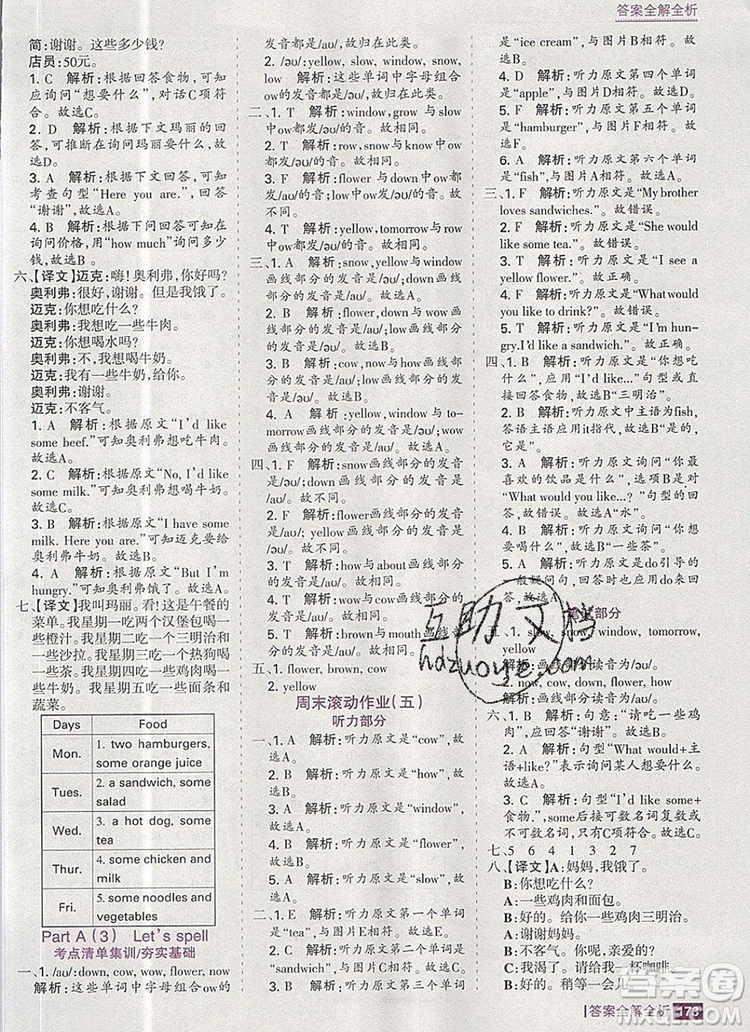 答案全解全析
简:谢谢。这些多少钱?
店员:50元。
1. C 解析:根据回答食物,可知
应询问“想要什么”,对话C项符
合。故选C。
2. D 解析:根据下文玛丽的回
答,可推断在问玛丽的状态。故
选D。
3. A 解析:根据下文回答,可知
考查句型“Here you are.”,回答
“谢谢”,故选A。
4. B 解析:根据下文回答可知
在询问价格,用“how much”询问多少
钱,故选B。
六、【译文】迈克:嗨!奥利弗,你好吗?
奥利弗:很好,谢谢。但是我饿了。
迈克:你想吃什么?
奥利弗:我想吃一些牛肉。
迈克:你想喝水吗?
奥利弗:不,我想喝牛奶。
迈克:我有一些牛奶,给你。
奥利弗:谢谢。
迈克:不客气。
1. B 解析:根据原文“I'd like
some beef.”可知奥利弗想吃牛肉。
故选B。
2. C 解析:根据原文“No, I'd like
some milk.”可知奥利弗想喝牛奶。
故选C。
3. B 解析:根据原文“I have some
milk. Here you are.”可知迈克要给
奥利弗牛奶。故选B。
4. A 解析:根据原文“But I'm
hungry.”可知奥利弗饿了。故选A。
七、【译文】我叫玛丽。看!这是午餐的
菜单。我星期一吃两个汉堡包喝一
些橙汁。我星期二吃一个三明治和
一些沙拉。我星期三吃一个热狗喝
一些茶。我星期四吃一些鸡肉喝一
些牛奶。我星期五吃一些面条和
蔬菜。
Days Food
Mon. 1. two hamburgers, some orange juice
Tues. 2. a sandwich, some salad
Wed. 3. a hot dog, some tea
Thur. 4. some chicken and milk
Fri. 5. some noodles and vegetables
Part A (3) Let's spell
考点清单集训/夯实基础
一、1. /aʊ/:down, cow, wow, flower, now
解析:这些单词中字母组合ow都
发音都是/aʊ/,故在此类。
2. /əʊ/:yellow, slow, window, snow,
low 解析:这些单词中字母组合
ow的发音都是/əʊ/,故在此类。
二、1. T 解析:window, grow 与slow中
ow都发/əʊ/的音。故相同。
2. T 解析:row, snow与know中
ow都发/əʊ/的音。故相同。
3. F 解析:yellow与down中ow分
别发/əʊ/与/aʊ/的音。故不同。
4. F 解析:flower与window中ow
分别发/aʊ/与/əʊ/的音。故
不同。
5. T 解析:yellow, tomorrow与row中
ow都发/əʊ/的音。故相同。
三、1. A 解析:yellow, window画线部
分的发音是/əʊ/;down画线部分
的发音是/aʊ/。故选A。
2. B 解析:cow, now与how画线
部分的发音是/aʊ/;know画线部
分的发音是/əʊ/。故选B。
3. C 解析:now, flower与down画
线部分的发音是/aʊ/;yellow画线
部分的发音是/əʊ/。故选C。
4. A 解析:cow, how与wow画线部
分的发音是/aʊ/;yellow画线部分
的发音是/əʊ/。故选A。
5. A 解析:yellow, window与to-
morrow画线部分的发音是/əʊ/;
now画线部分的发音是/aʊ/。
故选A。
四、1. F 解析:snow画线部分的发音
是/əʊ/;now画线部分的发音
是/aʊ/。故不同。
2. F 解析:flower画线部分的发
音是/aʊ/;window画线部分的发
音是/əʊ/。故不同。
3. T 解析:down与flower画线部
分的发音是/aʊ/。故相同。
4. T 解析:brown与mouth画线部
分的发音是/aʊ/。故相同。
五、1. flower, brown, cow
2. yellow
周末滚动作业(五)
听力部分
一、1. A 解析:听力原文是“cow”,故
选A。
2. B 解析:听力原文是“how”。故
选B。
3. A 解析:听力原文是“window”。
故选A。
4. B 解析:听力原文是“flower”。
故选B。
5. B 解析:听力原文是“slow”。故
选B。
二、1. E 解析:听力原文第一个单词
是“tea”,与图片E相符。故选E。
2. A 解析:听力原文第二个单词
是“sandwich”,与图片A相符。
故选A。
3. B 解析:听力原文第三个单词
是“ice cream”,与图片B相符。故
选B。
4. D 解析:听力原文第四个单词
是“apple”,与图片D相符。故选D。
5. C 解析:听力原文第五个单词
是“hamburger”,与图片C相符。
故选C。
6. F 解析:听力原文第六个单词
是“fish”,与图片F相符。故选F。
三、1. F 解析:听力原文是“My brother
loves sandwiches.”。故错误。
2. F 解析:听力原文是“She would
like some tea.”。故错误。
3. T 解析:听力原文是“I see a
yellow flower.”。故正确。
4. F 解析:听力原文是“What would
you like to drink?”。故错误。
5. T 解析:听力原文是“I'm hun-
gry.I'd like a sandwich.”。故正确。
四、1. B 解析:听力原文是“你想吃
什么”,应用“I'd like...”句型或
直接回答。故选B“三明治”。
2. B 解析:听力原文中主语为fish,
答语主语应用it指代。故选B“是的,
它是”。
3. A 解析:听力原文询问“你最
喜欢的饮品是什么”,选项A是对
“What would you like...?”句型
的回答。故选A“水”。
4. B 解析:听力原文询问“你想
要喝什么”。故选B“一些茶”。
5. A 解析:听力原文是do引导的
一般疑问句,回答时应用do或
don't。故选A。
笔试部分
snow, tomorrow, yellow
解析:画线部分读音为/əʊ/。
2. now, cow, down, flower, how
解析:画线部分读音为/aʊ/。
六、1. A 解析:句意:“请吃一些鸡
肉”。应回答“谢谢”。故选A。
2. A 解析:句型“What would+主
语+like?”表示询问某人想要什么。
故选A。
3. C 解析:句型“I'd like some+
食物.”,some后接可数名词复数或不
可数名词。只有C项符合。故选C。
七、5 6 4 1 3 2 7
八、【译文】A:妈妈,我饿了。
B:你想吃什么?
A:一些鸡肉和面包。
B:好的。给你一些鸡肉三明治。
A:谢谢妈妈。
B:不客气,亲爱的。
A:好的。请给我一杯咖啡。
B:好的。稍等一会儿。
互助文档
hdzuoye.com
答案圈
答案全解全析 173